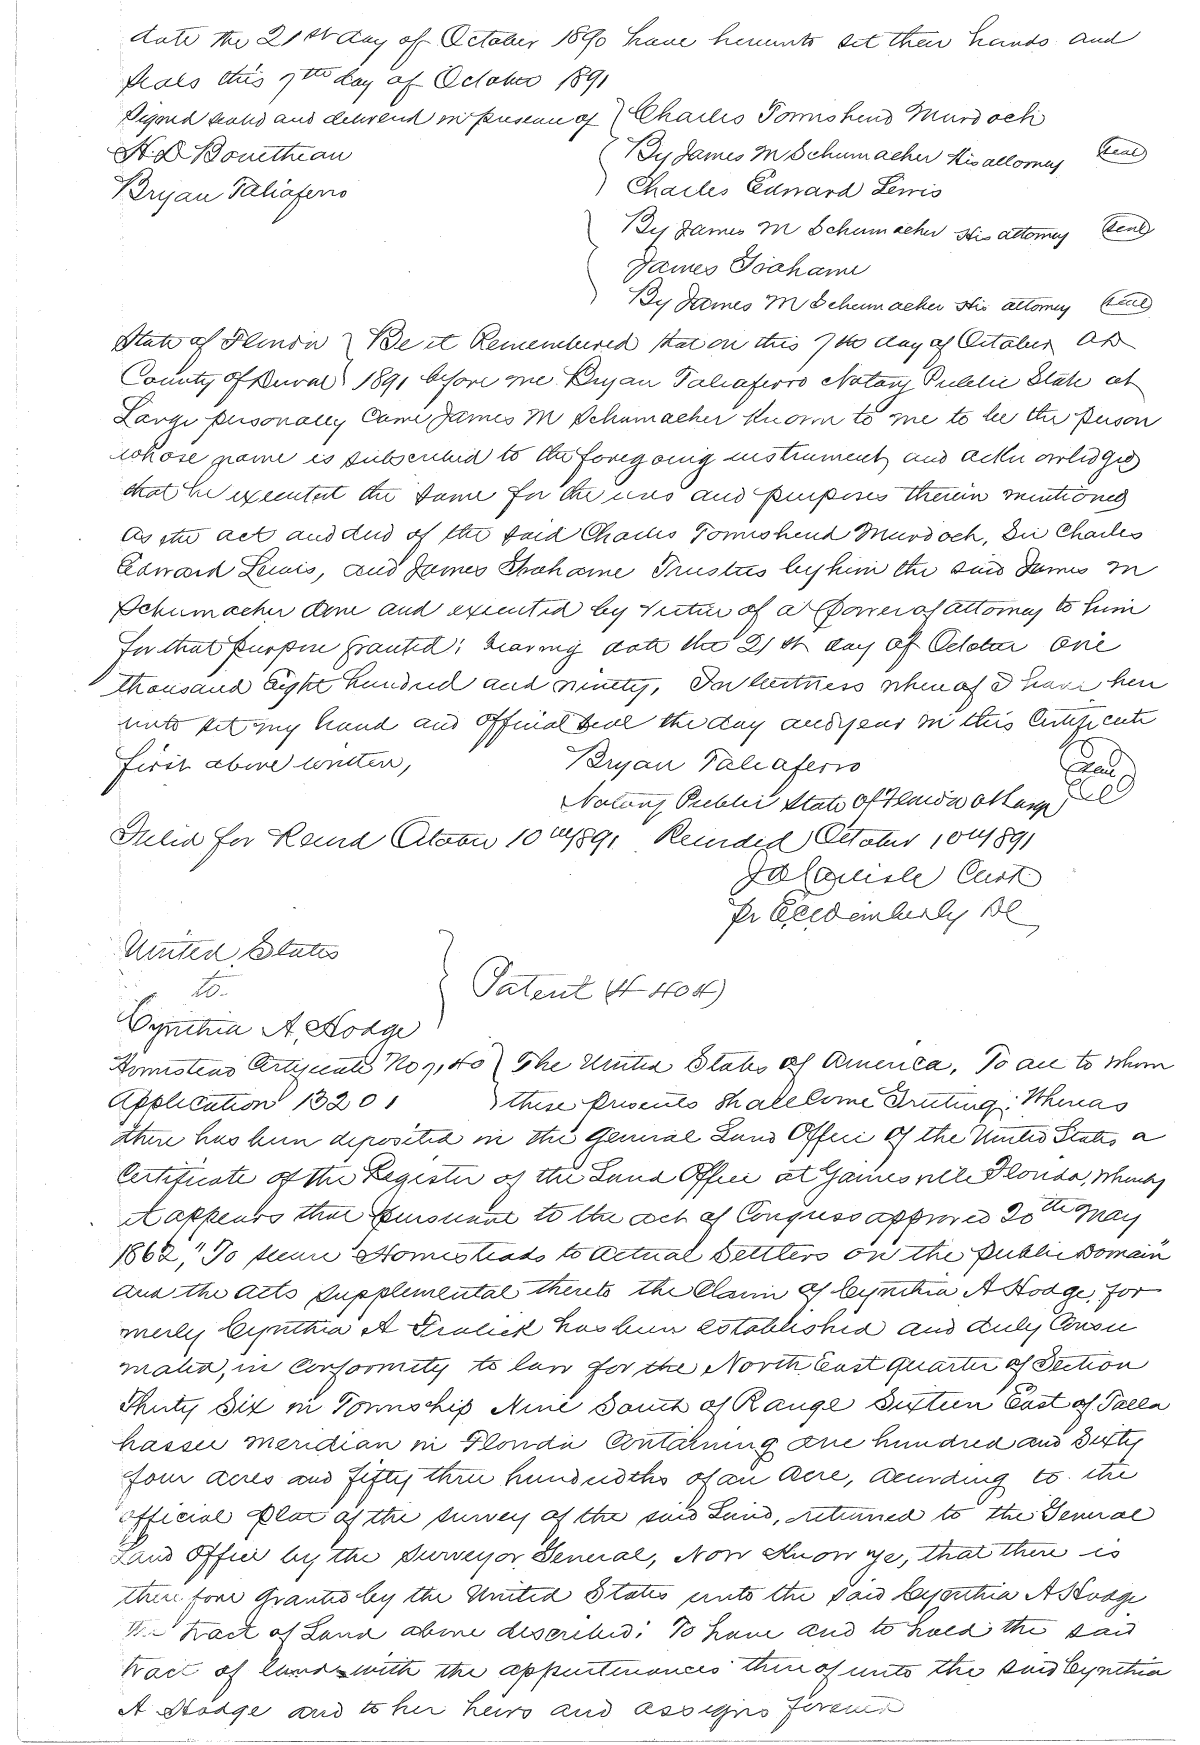 date the 21st day of October 1890 have hereunto set their hands and
seals this 7th day of October 1891
Signed sealed and delivered in presence of } Charles Townshend Murdoch
H D Bonetheau } By James M Schumacher His attorney (seal)
Bryan Taliaferro ) Charles Edward Lewis
By James M Schumacher His attorney (seal)
James Grahame
By James M Schumacher His attorney (seal)
State of Florida } Be it Remembered that on this 7th day of October AD
County of Duval } 1891 before me Bryan Taliaferro Notary Public State at
Large personally Came James M Schumacher Known to me to be the person
whose name is subscribed to the foregoing instrument, and acknowledged
that he executed the same for the uses and purposes therein mentioned
as the act and deed of the said Charles Townshend Murdoch, Sir Charles
Edward Lewis, and James Grahame Trustees by him the said James M
Schumacher done and executed by virtue of a Power of attorney to him
for that purpose granted; bearing date the 21st day of October one
thousand Eight hundred and ninety, In witness whereof I have here
unto set my hand and official Seal the day and year in this Certificate
first above written, Bryan Taliaferro
Notary Public State of Florida at Large
Filed for Record October 10th 1891 Recorded October 10th 1891
Clerk
Pr DC
United States
to
Patent (# 404)
Cynthia A, Hodge
Homestead Certificate No 7,40 } The United States of America, To all to whom
Application 13201 } these presents shall Come Greeting: Whereas
there has been deposited in the General Land Office of the United States a
Certificate of the Register of the Land Office at Gainesville Florida, whereby
it appears that pursuant to the act of Congress approved 20th May
1862, "To secure Homesteads to actual Settlers on the public Domain"
and the acts supplemental thereto the Claim of Cynthia A Hodge, for
merly Cynthia A Fralick has been established and duly Consu
mated, in Conformity to law for the North East quarter of Section
Thirty Six in Township Nine South of Range Sixteen East of Talla
hassee Meridian in Florida Containing one hundred and Sixty
four acres and fifty three hundredths of an acre, according to the
official plat of the survey of the said Land, returned to the General
Land Office by the Surveyor General, Now Know ye, that there is
therefore granted by the United States unto the said Cynthia A Hodge
the tract of Land above described; To have and to hold the said
tract of land with the appurtenances thereof unto the said Cynthia
A Hodge and to her heirs and assigns forever